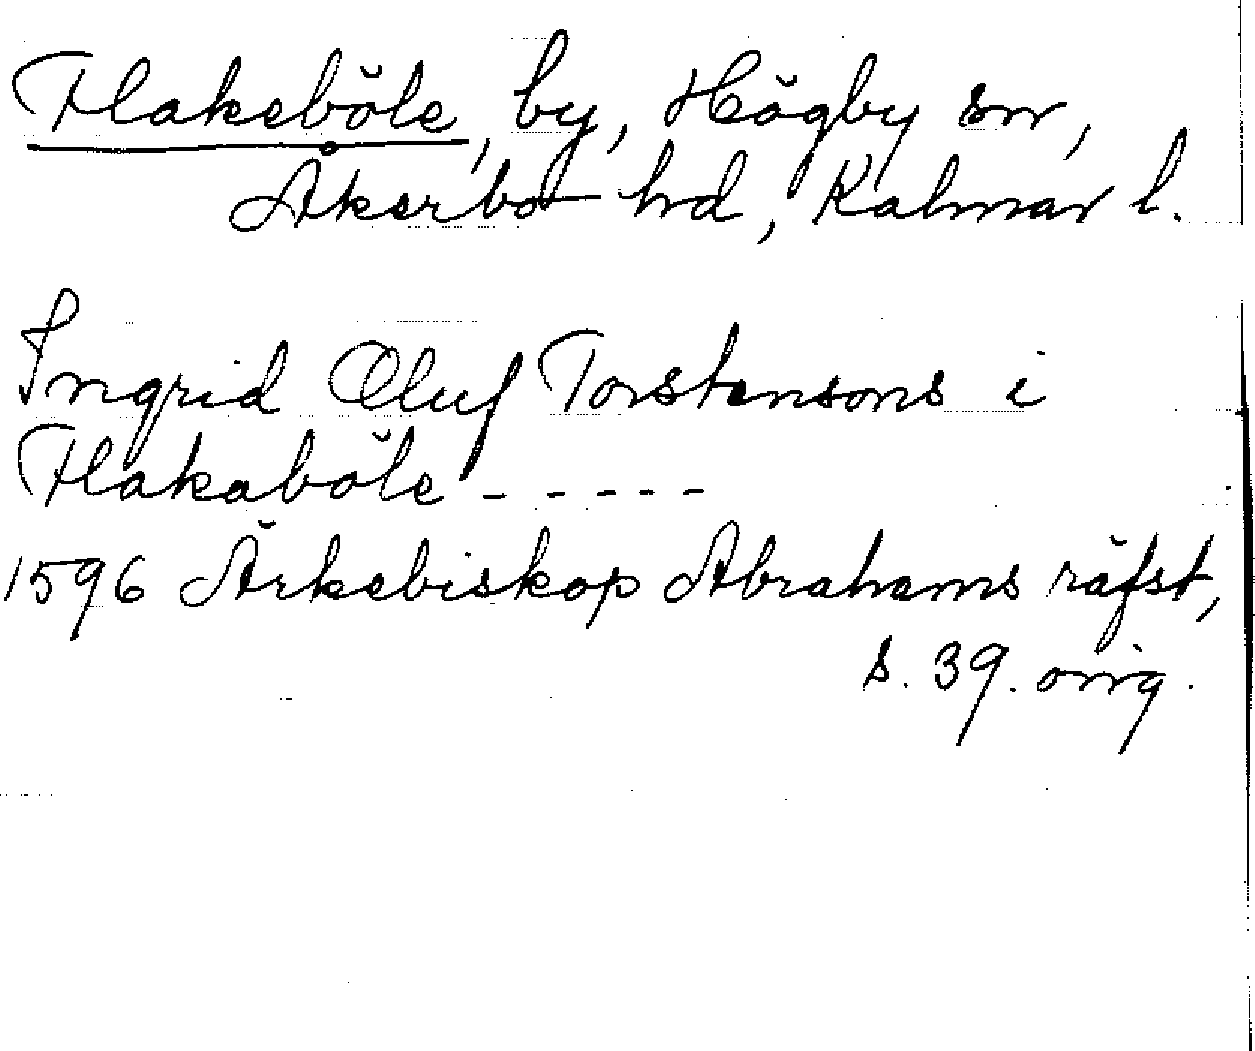 Flakeböle, by, Högby sn,
Åkerbo hd, Kalmar l.
Ingrid Oluf Torstensons i
Flakaböle - - - - -
1596 Ärkebiskop Abrahams räfst,
s. 39. orig.